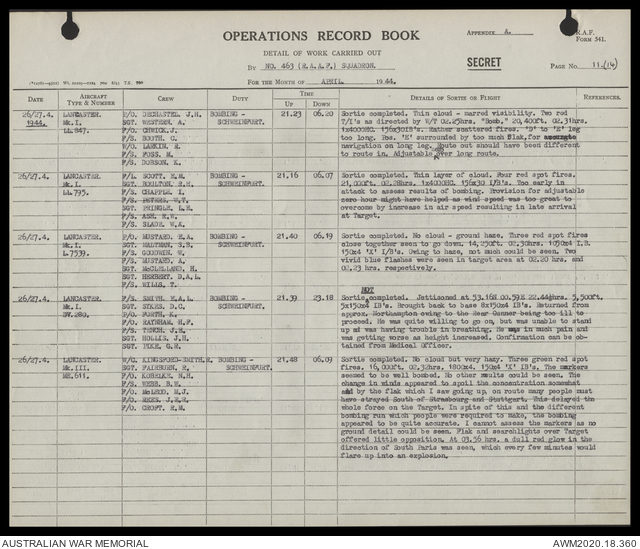 OPERATIONS RECORD BOOK
APPENDIX A.
R.A.F.
FORM 541.
DETAIL OF WORK CARRIED OUT
BY NO. 463 (R.A.A.F.) SQUADRON.
SECRET
PAGE No. 11.(14)
FOR THE MONTH OF APRIL 1944.
DATE
AIRCRAFT TYPE & NUMBER
CREW
DUTY
TIME
UP
DOWN
DETAILS OF SORTIE OR FLIGHT
REFERENCES.
26/27.4. 1944.
LANCASTER. Mk.I. LL.847.
P/O. DECHASTEL, J.H.
SGT. WESTREN, A.
F/O. CHWICK, J.
F/S. BOOTH, C.
W/O. LARKIN, R.
F/S. FOSS, M.
F/S. DOBSON, K.
BOMBING - SCHWEINFURT.
21.23
06.20
Sortie completed. Thin cloud - marred visibility. Two red
T/I's as directed by W/T 02.25hrs. "Bomb," 20,400ft. 02.31hrs.
1x4000HC. 156x30IB's. Rather scattered fires. 'B' to 'E' leg
too long. Pos. 'E' surrounded by too much flak, for
navigation on long leg. Route out should have been different
to route in. Adjustable over long route.
26/27.4.
LANCASTER. Mk.I. LL795.
F/L. SCOTT, E.M.
SGT. BOULTON, R.H.
F/S. CHAPPLE, I.
F/S. PETERS, W.T.
SGT. PRINGLE, L.E.
F/S. ASH, R.W.
F/S. SLADE, W.A.
BOMBING - SCHWEINFURT.
21.16
06.07
Sortie completed. Thin layer of cloud. Four red spot fires.
21,000ft. 02.28hrs. 1x4000HC. 156x30 I/B's. Too early in
attack to assess results of bombing. Provision for adjustable
zero hour might have helped as wind speed was too great to
overcome by increase in air speed resulting in late arrival
at Target.
26/27.4.
LANCASTER. Mk.I. L.7539.
P/O. MUSTARD, E.A.
SGT. WALTMAN, S.B.
F/S. GOODWIN, W.
F/S. MUSTARD, A.
SGT. McCLELLAND, H.
SGT. HERBERT, D.A.L.
F/S. WILLS, T.
BOMBING - SCHWEINFURT.
21.40
06.19
Sortie completed. No cloud - ground haze. Three red spot fires
close together seen to go down. 14,250ft. 02.30hrs. 1050x4 I.B.
150x4 'X' I/B's. Owing to haze, not much could be seen. Two
vivid blue flashes were seen in target area at 02.20 hrs. and
02.23 hrs. respectively.
26/27.4.
LANCASTER. Mk.I. DV.280.
F/S. SMITH, E.A.L.
SGT. SYKES, D.C.
P/O. FORTH, K.
F/O. HAYNHAM, H.F.
F/S. TENCH, J.H.
SGT. HOLLIS, J.H.
SGT. PIKE, G.R.
BOMBING - SCHWEINFURT.
21.39
23.18
NOT
Sortie completed. Jettisoned at 53.16N 00.59E 22.44hrs. 5,500ft.
5x150x4 IB's. Brought back to base 8x150x4 IB's. Returned from
approx. Northampton owing to the Rear Gunner being too ill to
proceed. He was quite willing to go on, but was unable to stand
up and was having trouble in breathing. He was in much pain and
was getting worse as height increased. Confirmation can be ob-
tained from Medical Officer.
26/27.4.
LANCASTER. Mk.III. ME.611.
W/C. KINGSFORD-SMITH, R.
SGT. FAIRBURN, R.
F/O. KOBELKE, N.H.
F/S. WEBB, B.W.
F/O. McLEOD, N.J.
F/O. REES, J.E.R.
F/O. CROFT, R.M.
BOMBING - SCHWEINFURT.
21.48
06.09
Sortie completed. No cloud but very hazy. Three green red spot
fires. 16,000ft. 02.32hrs. 1800x4. 150x4 'X' IB's. The markers
seemed to be well bombed. No other results could be seen. The
change in winds appeared to spoil the concentration somewhat
and by the flak which I saw going up, on route many people must
have strayed South of Strasbourg and Stuttgart. This delayed the
whole force on the Target. In spite of this and the different
bombing run which people were required to make, the bombing
appeared to be quite accurate. I cannot assess the markers as no
ground detail could be seen. Flak and searchlights over Target
offered little opposition. At 03.56 hrs. a dull red glow in the
direction of South Paris was seen, which every few minutes would
flare up into an explosion.
AUSTRALIAN WAR MEMORIAL
AWM2020.18.360